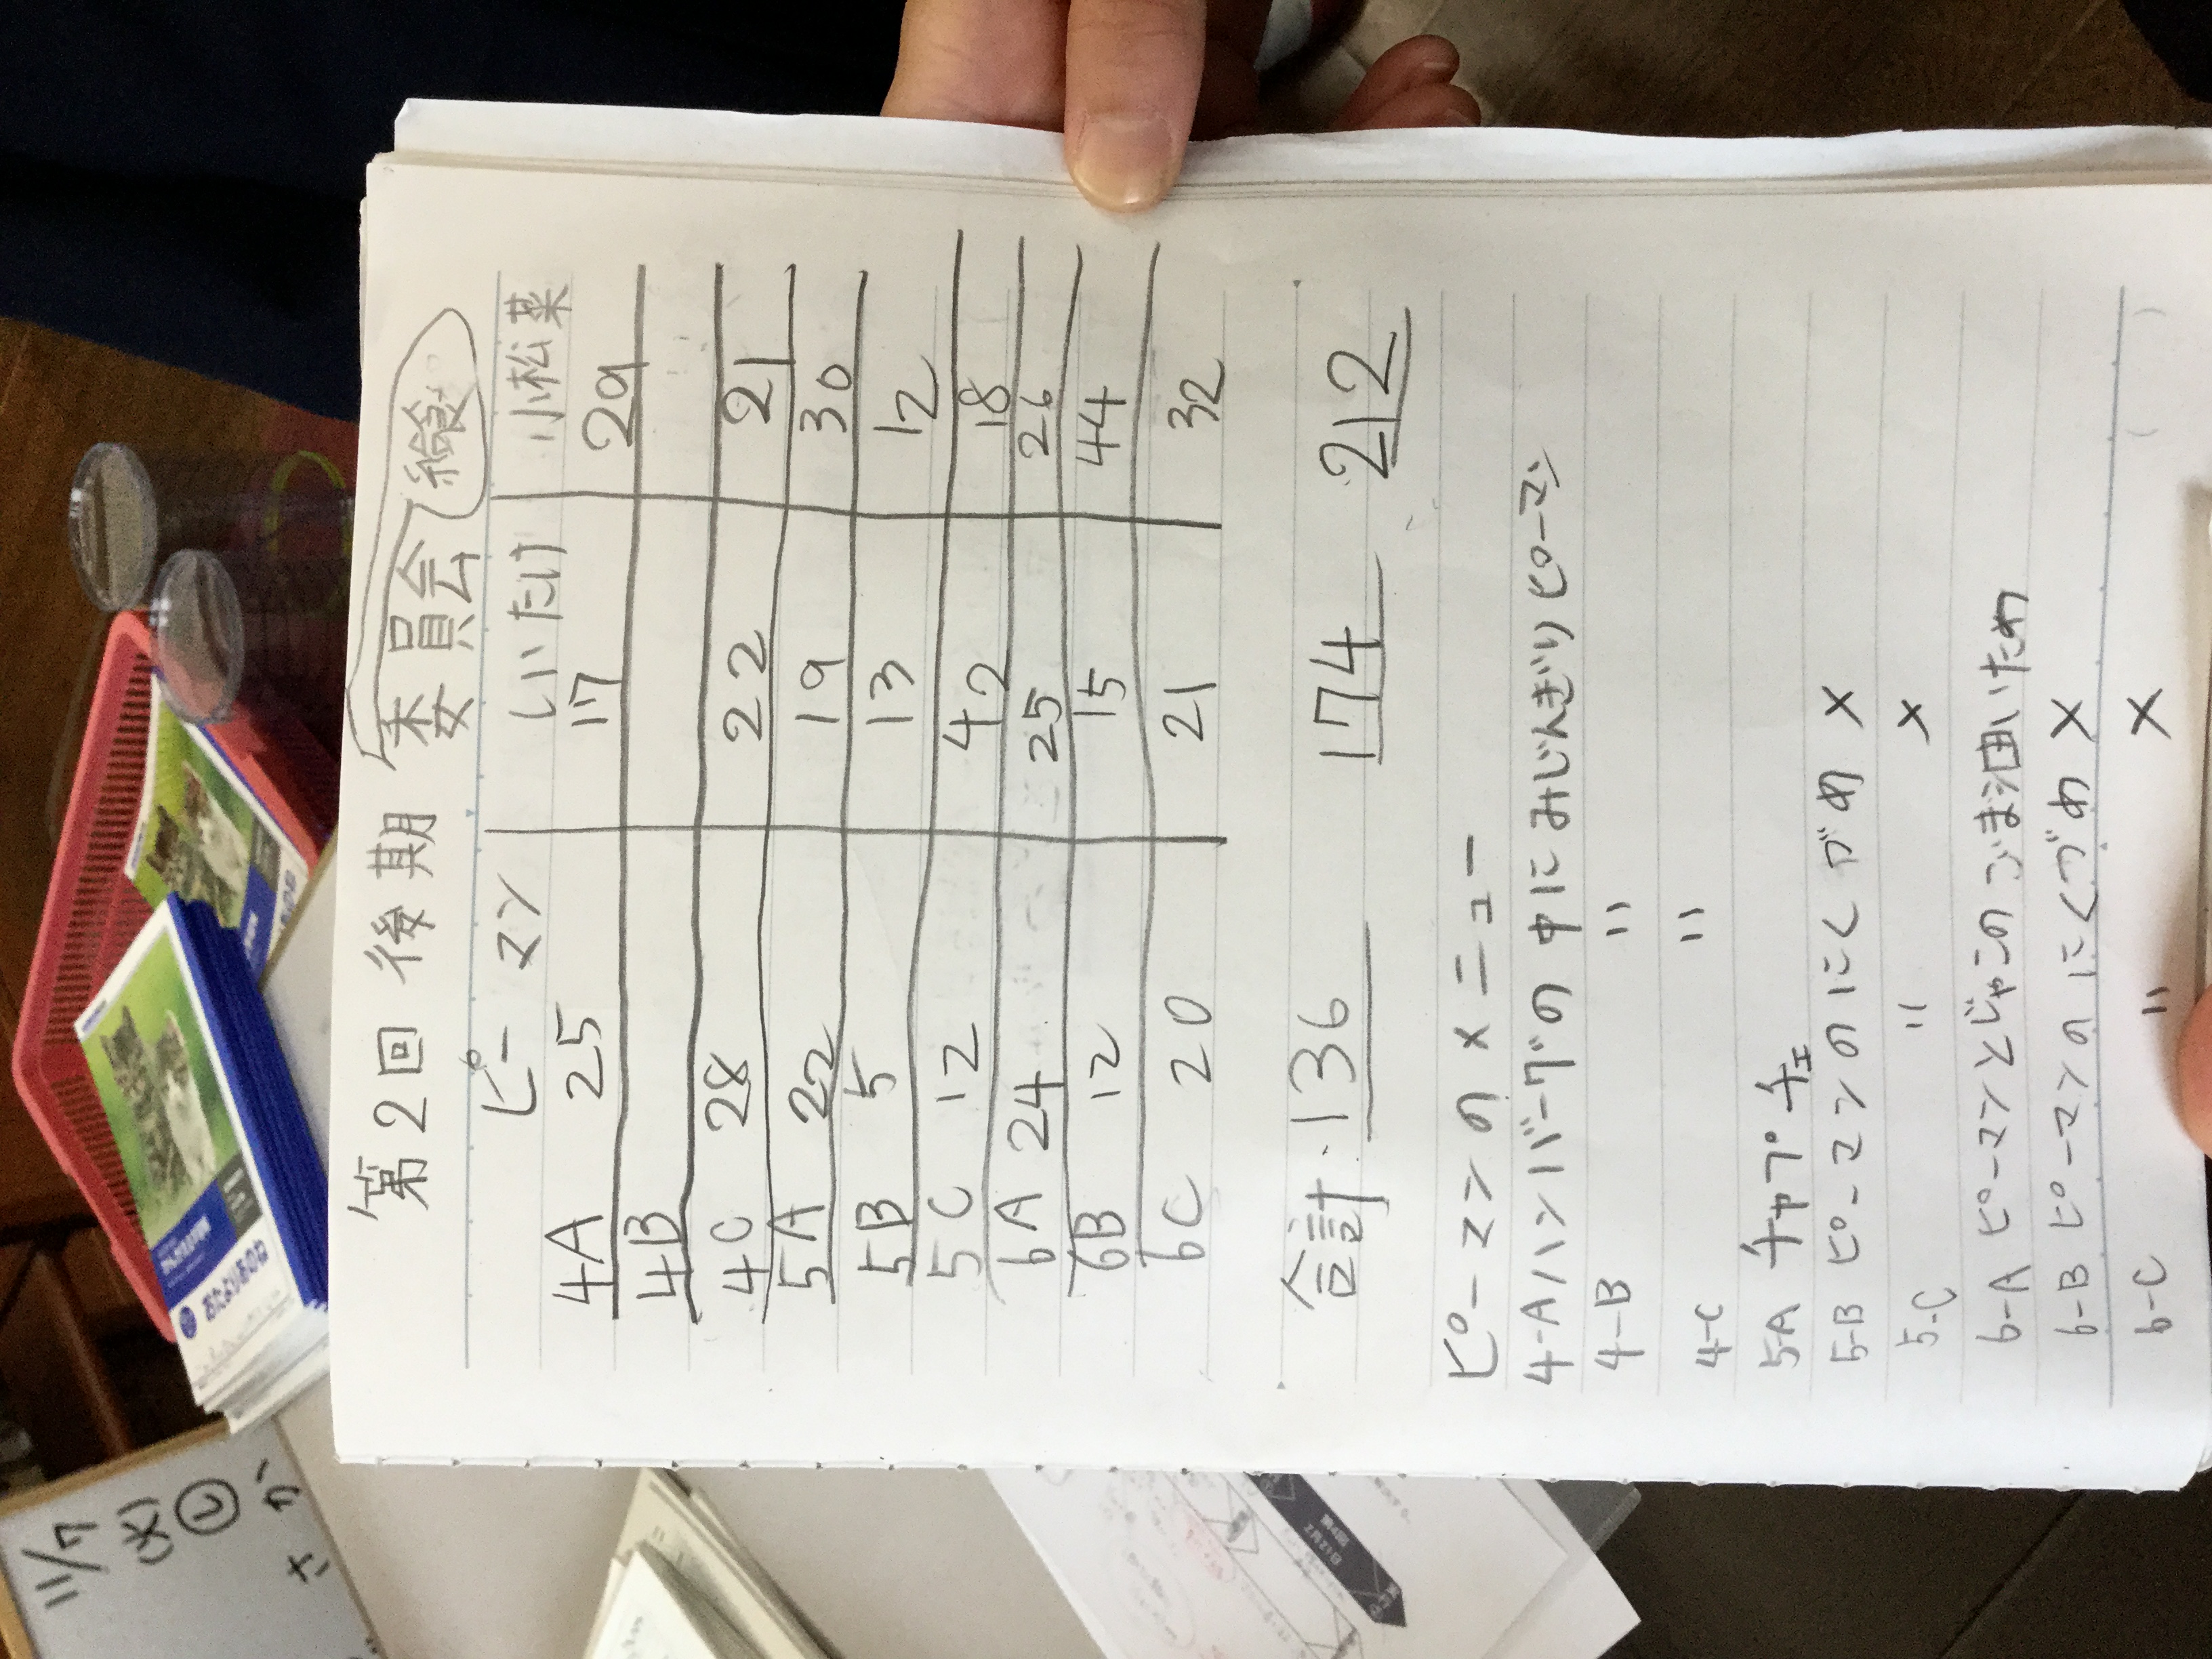 第2回 後期 委員会 給食
ピーマン しいたけ 小松菜
4A 25 17 29
4B
4C 28 22 21
5A 22 19 30
5B 5 13 12
5C 12 42 18
6A 24 25 26
6B 12 15 44
6C 20 21 32
合計・136 174 212
ピーマンのメニュー
4-Aハンバーグの中にみじんぎりピーマン
4-B 〃
4-C 〃
5-A チャプチェ
5-B ピーマンのにくづめ ×
5-C 〃 ×
6-A ピーマンとじゃこのごま油いため
6-B ピーマンのにくづめ ×
6-C 〃 ×
11/7
(火)
おたよりおのね